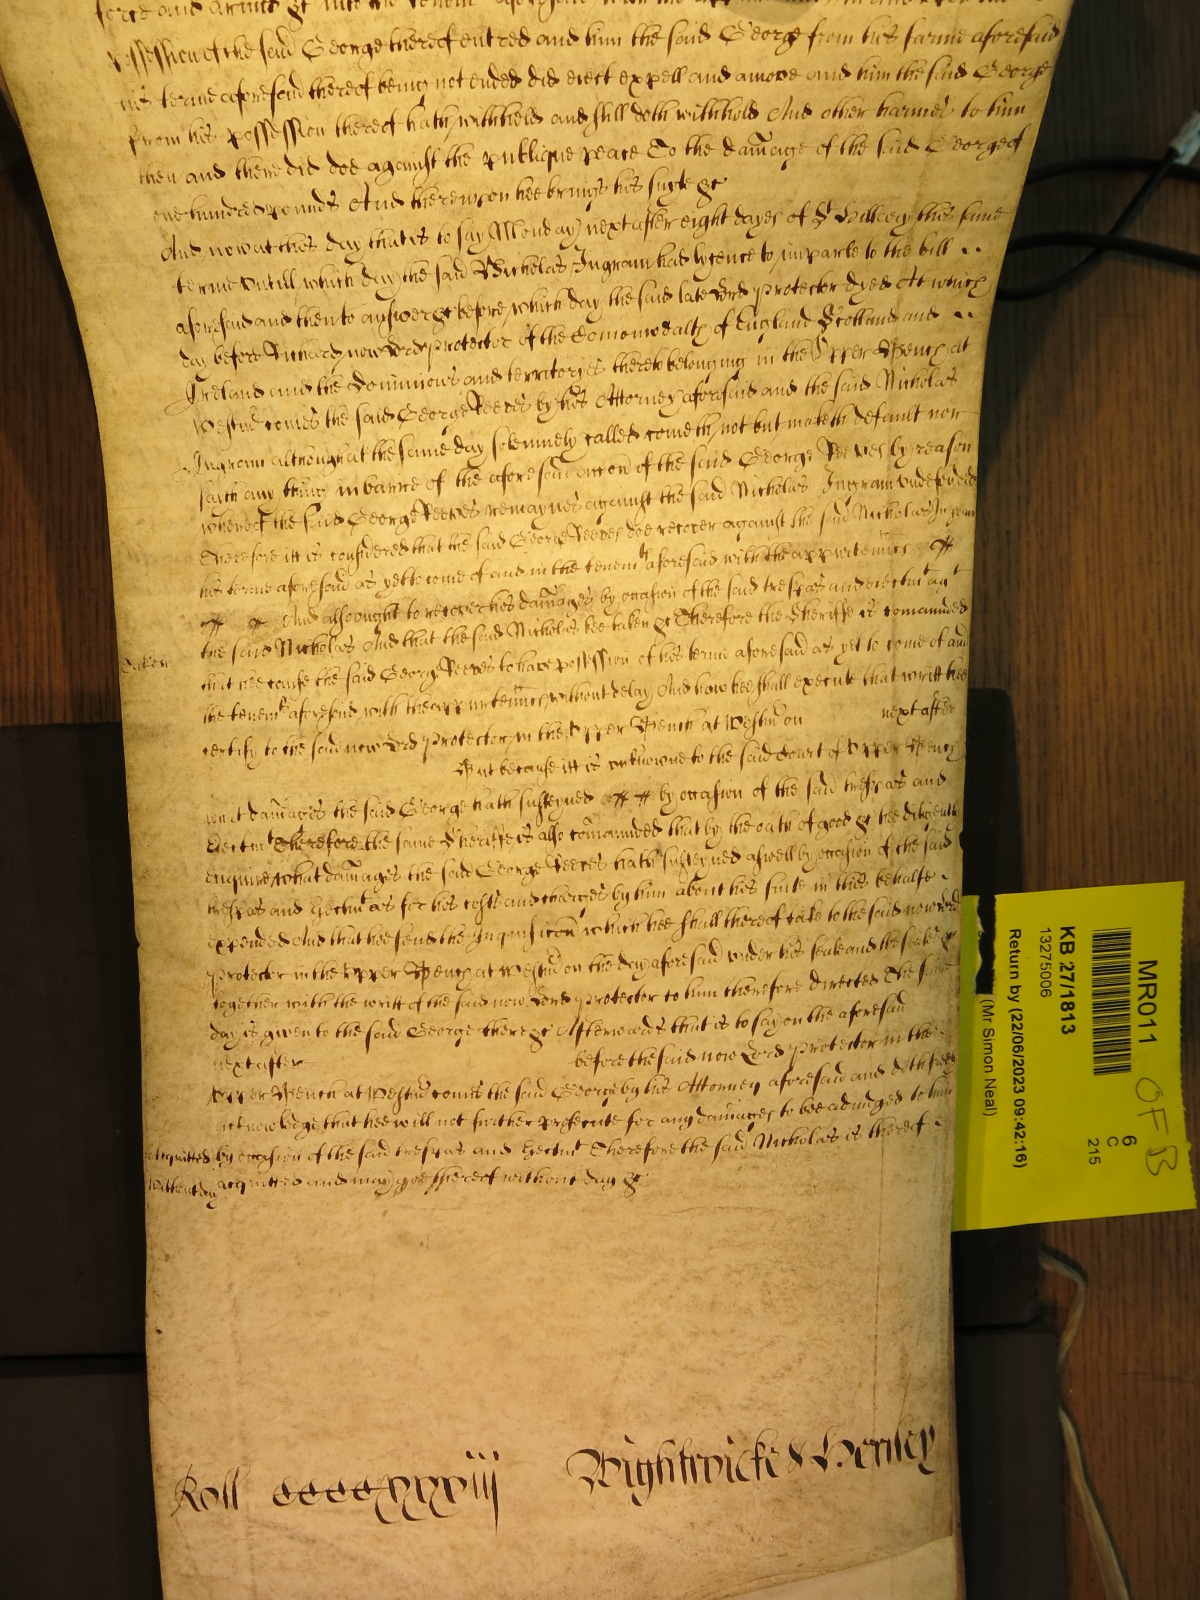 force and armes &c into the tenem
possession of the said George thereof entred and him the said George from his farme aforesaid
his terme aforesaid thereof being not ended did eiect expell and amove and him the said George
from his possession thereof hath withheld and still doth withhold And other harmes to him
then and there did doe against the publique peace To the damage of the said George of
one hundred pounds And thereupon hee brings his suyte &c
And now at this day that is to say Monday next after eight dayes of St Hillary this same
terme vntill which day the said Nicholas Ingram had lycence to imparle to the bill
aforesaid and then to answer &c before which day the said late Lord Protector dyed At which
day before Richard now Lord Protector of the Comonwealth of England Scotland and
Ireland and the Dominions and territoryes thereto belonging in the Vpper Bench at
Westm comes the said George Reeves by his Attorney aforesaid and the said Nicholas
Ingram although at the same day solemnely called cometh not but maketh default nor
saith any thing in barre of the aforesaid accon of the said George Reeves by reason
whereof the said George Reeves remaynes against the said Nicholas Ingram vndefended
Therefore itt is considered that the said George Reeves doe recover against the said Nicholas Ingram
his terme aforesaid as yet to come of and in the tenemts aforesaid with the appurtennces
And also ought to recover his damages by occasion of the said trespas and eiectmt agt
the said Nicholas And that the said Nicholas bee taken &c Therefore the Sheriffe is comanded
that hee cause the said George Reeves to have possession of his terme aforesaid as yet to come of and in
the tenemts aforesaid with the appurtennces without delay And how hee shall execute that writt hee
certify to the said now Lord Protector in the Vpper Bench at Westm on next after
But because itt is vnknowne to the said Court of Vpper Bench
what damages the said George hath susteyned by occasion of the said trespas and
Eiectmt Therefore the same Sheriffe is also comanded that by the oath of good &c hee diligently
enquire what damages the said George Reeves hath susteyned aswell by occasion of the said
trespas and Eiectmt as for his costs and charges by him about his suite in this behalfe
expended And that hee send the Inquisicon which hee shall thereof take to the said now Lord
Protector in the Vpper Bench at Westm on the day aforesaid vnder his seale and the seales &c
together with the writt of the said now Lord Protector to him therefore directed The same
day is given to the said George there &c Afterwards that is to say on the aforesaid
next after before the said now Lord Protector in the
Vpper Bench at Westm comes the said George by his Attorney aforesaid and doth freely
acknowledge that hee will not further prosecute for any damages to bee adiudged to him
Acquitted by occasion of the said trespas and Eiectmt Therefore the said Nicholas is thereof
Without day acquitted and may goe thereof without day &c
Roll CCCCXXXviij Wightwicke & Henley
MR011
KB 27/1813
13275006
Return by (22/06/2023 09:42:16)
(Mr. Simon Neal)
6
C
215
OF B